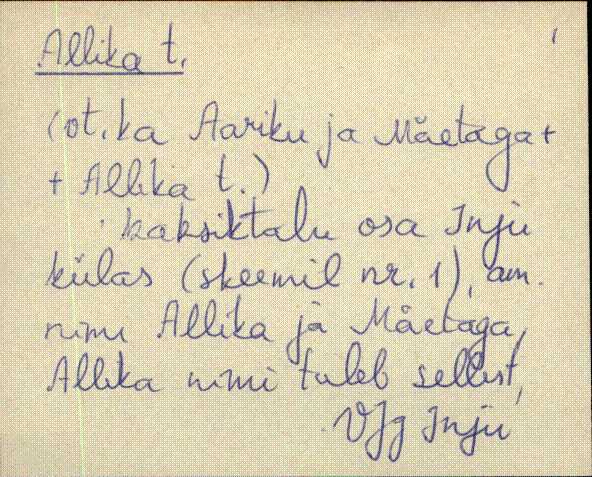 Allika t. 1
(ot. ka Aariku ja Mäetaga +
+ Allika t.)
kaksiktalu osa Inju
külas (skeemil nr. 1), am.
nimi Allika ja Mäetaga,
Allika nimi tuleb sellest,
VJg Inju